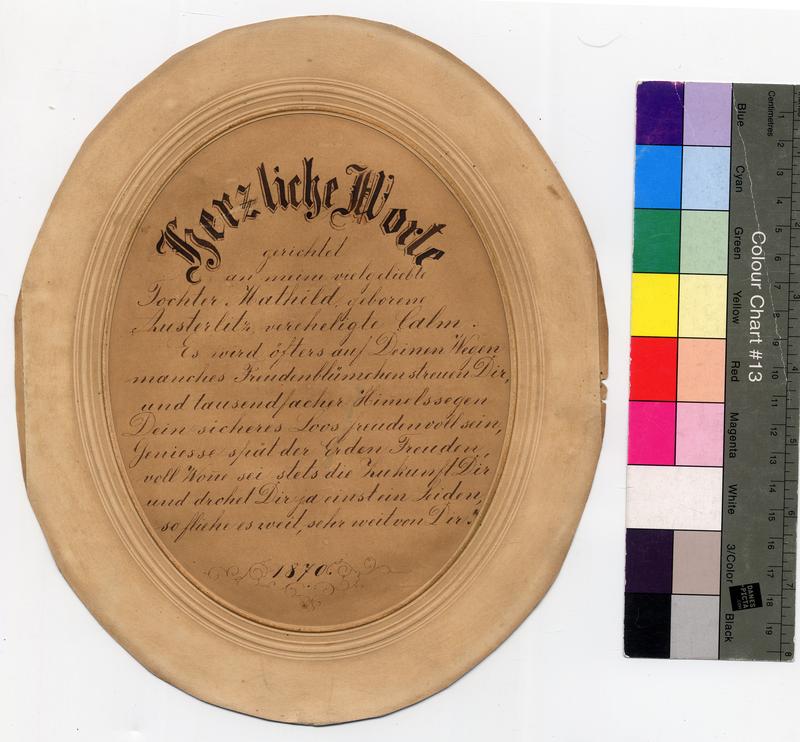 Herzliche Worte
gerichtet
an meine vielgeliebte
Tochter Mathild, geborene
Austerlitz, vereheligte Calm.
Es wird öfters auf Deinen Wegen
manches Freudenblümchen streuen Dir,
und tausendfacher Himelssegen
Dein sicheres Loos freudenvoll sein,
Geniesse spät der Erden Freuden,
voll Wone sei stets die Zukunft Dir
und drohet Dir ja einst ein Leiden,
so fliehe es weit, sehr weit von Dir.
1870.
Colour Chart #13
Blue
Cyan
Green
Yellow
Red
Magenta
White
3/Color
Black
Centimetres
1 2 3 4 5 6 7 8 9 10 11 12 13 14 15 16 17 18 19
2 3 4 5 6 7 8
DANES
PICTA
.COM